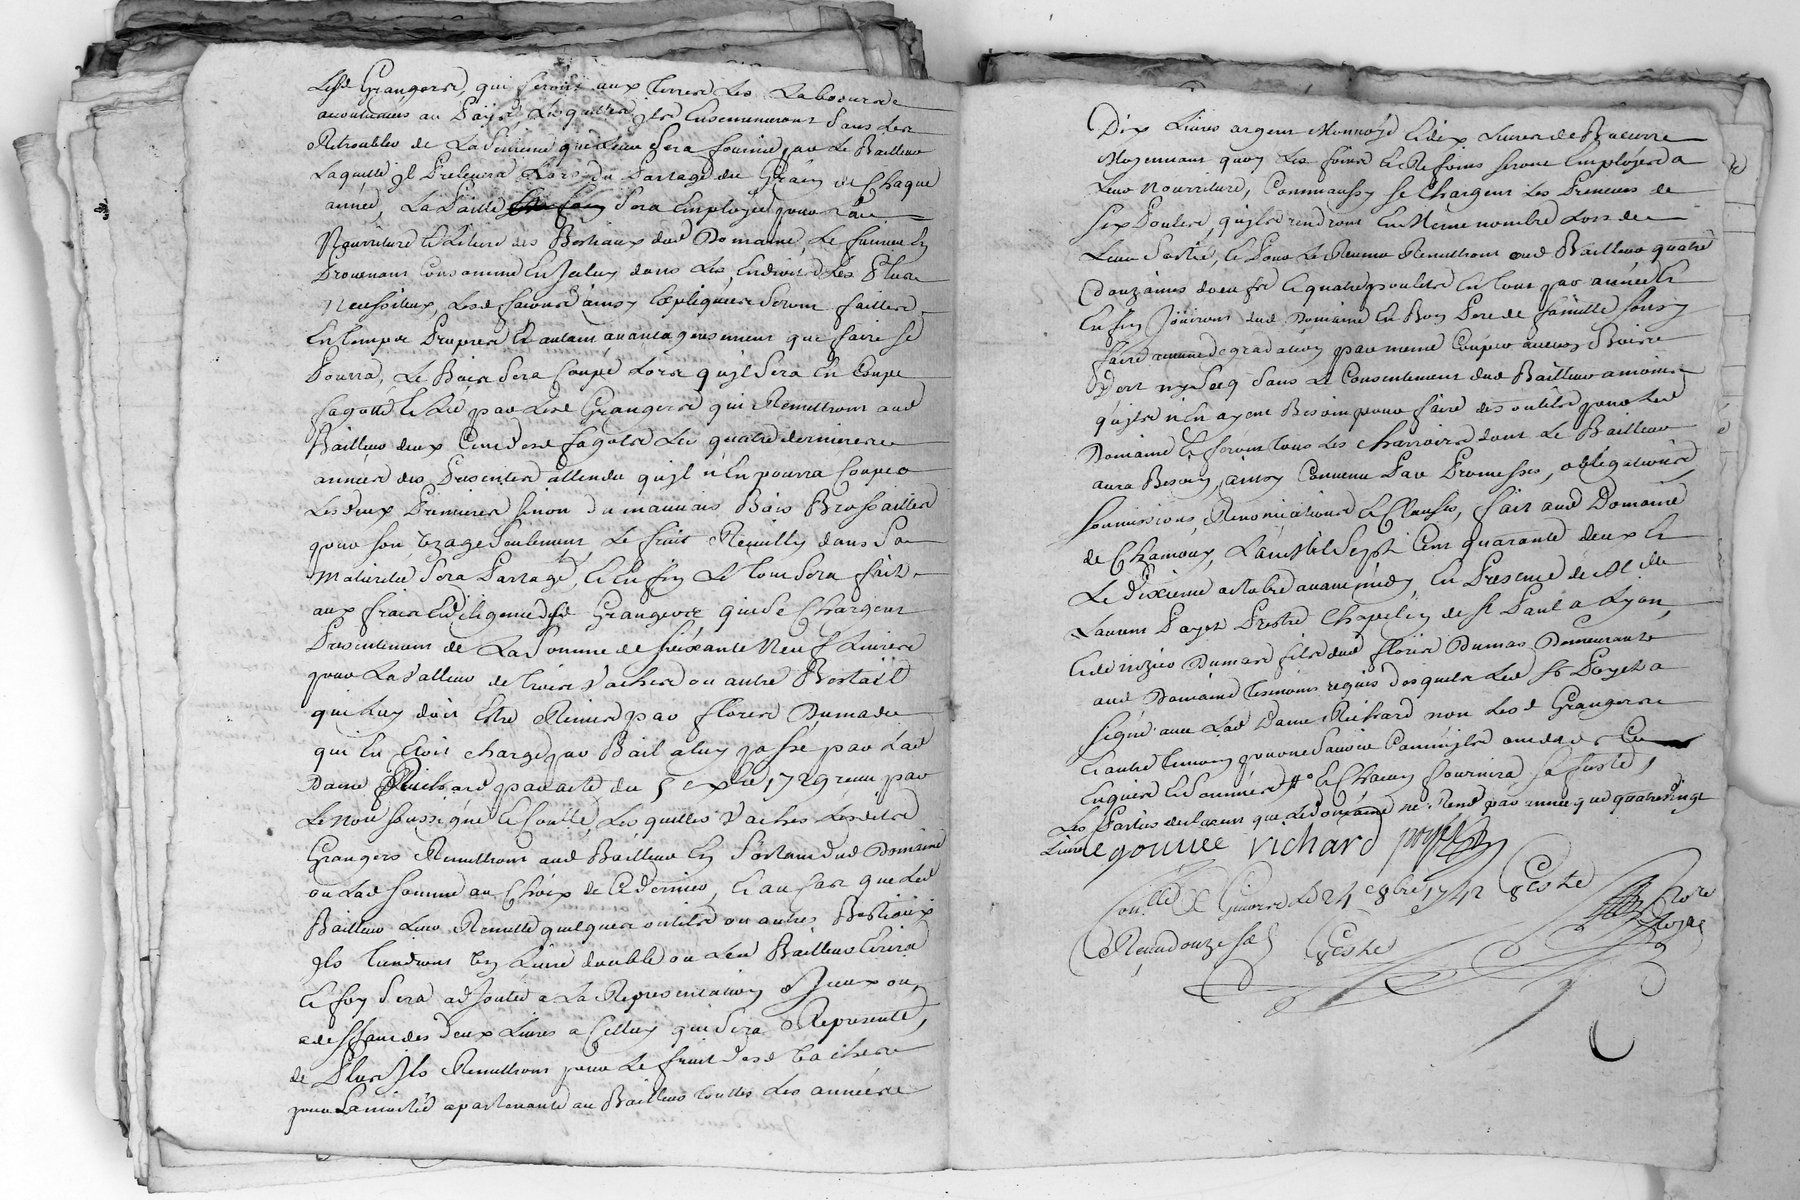 Lesd Grangers, qui feront aux terres les Labours
accoutumes au Pays, Lesquelles ils Ensemenceront dans les
Retroubles de La Semence qui leur sera fournie par Le Bailleur
Laquelle jl Prelevera Lors du Partage du Grain de Chaque
année, La Paille sera Employée pour la
Nourriture et Litiere des Bestiaux dud Domaine, Le fumier En
Provenant consommé En jceluy dans Les Endroits Les Plus
Necessiteux, Lesd faveurs ainsy Expliquées seront faittes
En temps Propres et autant avantageusement que faire se
Pourra, Le Bois sera Coupé Lors qu'jl sera En Coupe
fagotté et Lié par Lesd Grangers qui Remettront aud
Bailleur deux Cent desd fagots Les quatre dernieres
années des Presentes attendu qu'jl n'En pourra Couper
Les deux Premieres sinon du mauvais Bois Brossailles
pour son usage seulement, Le fruit Reuilly dans sa
Maturité sera Partagé, et En fin Le tout sera fait
aux frais et diligence desd Grangers, qui se Chargent
Presentement de La Somme de soixante Neuf Livres
pour La Valleur de trois Vaches ou autre Bestail
qui Luy doit Estre Remis par flores Dumas
qui En Etoit chargé par Bail a luy passé par Lad
Dame Richard par acte du 5 1729 receu par
Le Nore soussigné et Conllé, Les quelles Vaches Lesdits
Grangers Remettront aud Bailleur En Sortant dud Domaine
ou Lad somme au Choix de Ce dernier, Et au Cas que Led
Bailleur Leur Remette quelques outils ou autres Bestiaux
jls tiendront Un Livre double ou Led Bailleur Ecrira
Et foy sera adjoutée a La Representation d'Jceux ou,
a deffaut des deux Livres a Celluy qui sera Representé,
de Plus jls Remettront pour Le fruit desd Vaches
pour La moitié apartenante au Bailleur toutes Les années
Dix Livres argent Monnoyé Et dix Livres de Beurre
Moyennant quoy Les foins Et Refoins seront Employés a
Leur Nourriture, Comm'aussy se Chargent Les Preneurs de
six Poules, qu'jls rendront En Meme nombre Lors de
Leur Sortie, Et Pour Le Revenu Remettront aud Bailleur quatre
douzaines d'oeufs Et quatre poulets En tout par année Et
En fin Jouiront dud Domaine En Bon Pere de famille sans y
faire aucune degradation par meme Couper aucuns Bois
Vert ny Secq Sans Le Consentement dud Bailleur a moins
qu'jls n'En ayent Besoin pour faire des outils pour led
Domaine Et feront tous Les charrois dont Le Bailleur
aura Besoin, ainsy Convenu Par Promesses, obligations,
soumissions, Renonciations Et Clauses, fait aud Domaine
de Chamoux, L'an Mil Sept Cent quarante deux Et
Le dixieme octobre avant midy, En Presence de Mre
Laurent Payet Prestre Chapelin de St Paul a Lyon,
Et de Dumas fils dud flores Dumas Demeurants
aud Domaine tesmoins requis desquels Led Sr Payet a
signé avec Lad Dame Richard non Lesd Grangers
Et autre temoin pour ne Sçavoir Comm'jls ont dit de Ce
Enquis Et Sommés Et Chacun fournira sa suste,
Les Parties declarent que Le domaine ne Rend par année que quatre Vingt
Livres egounee richard payet
Conllé a Givors Le 24 8bre 1742
Receu douze sols